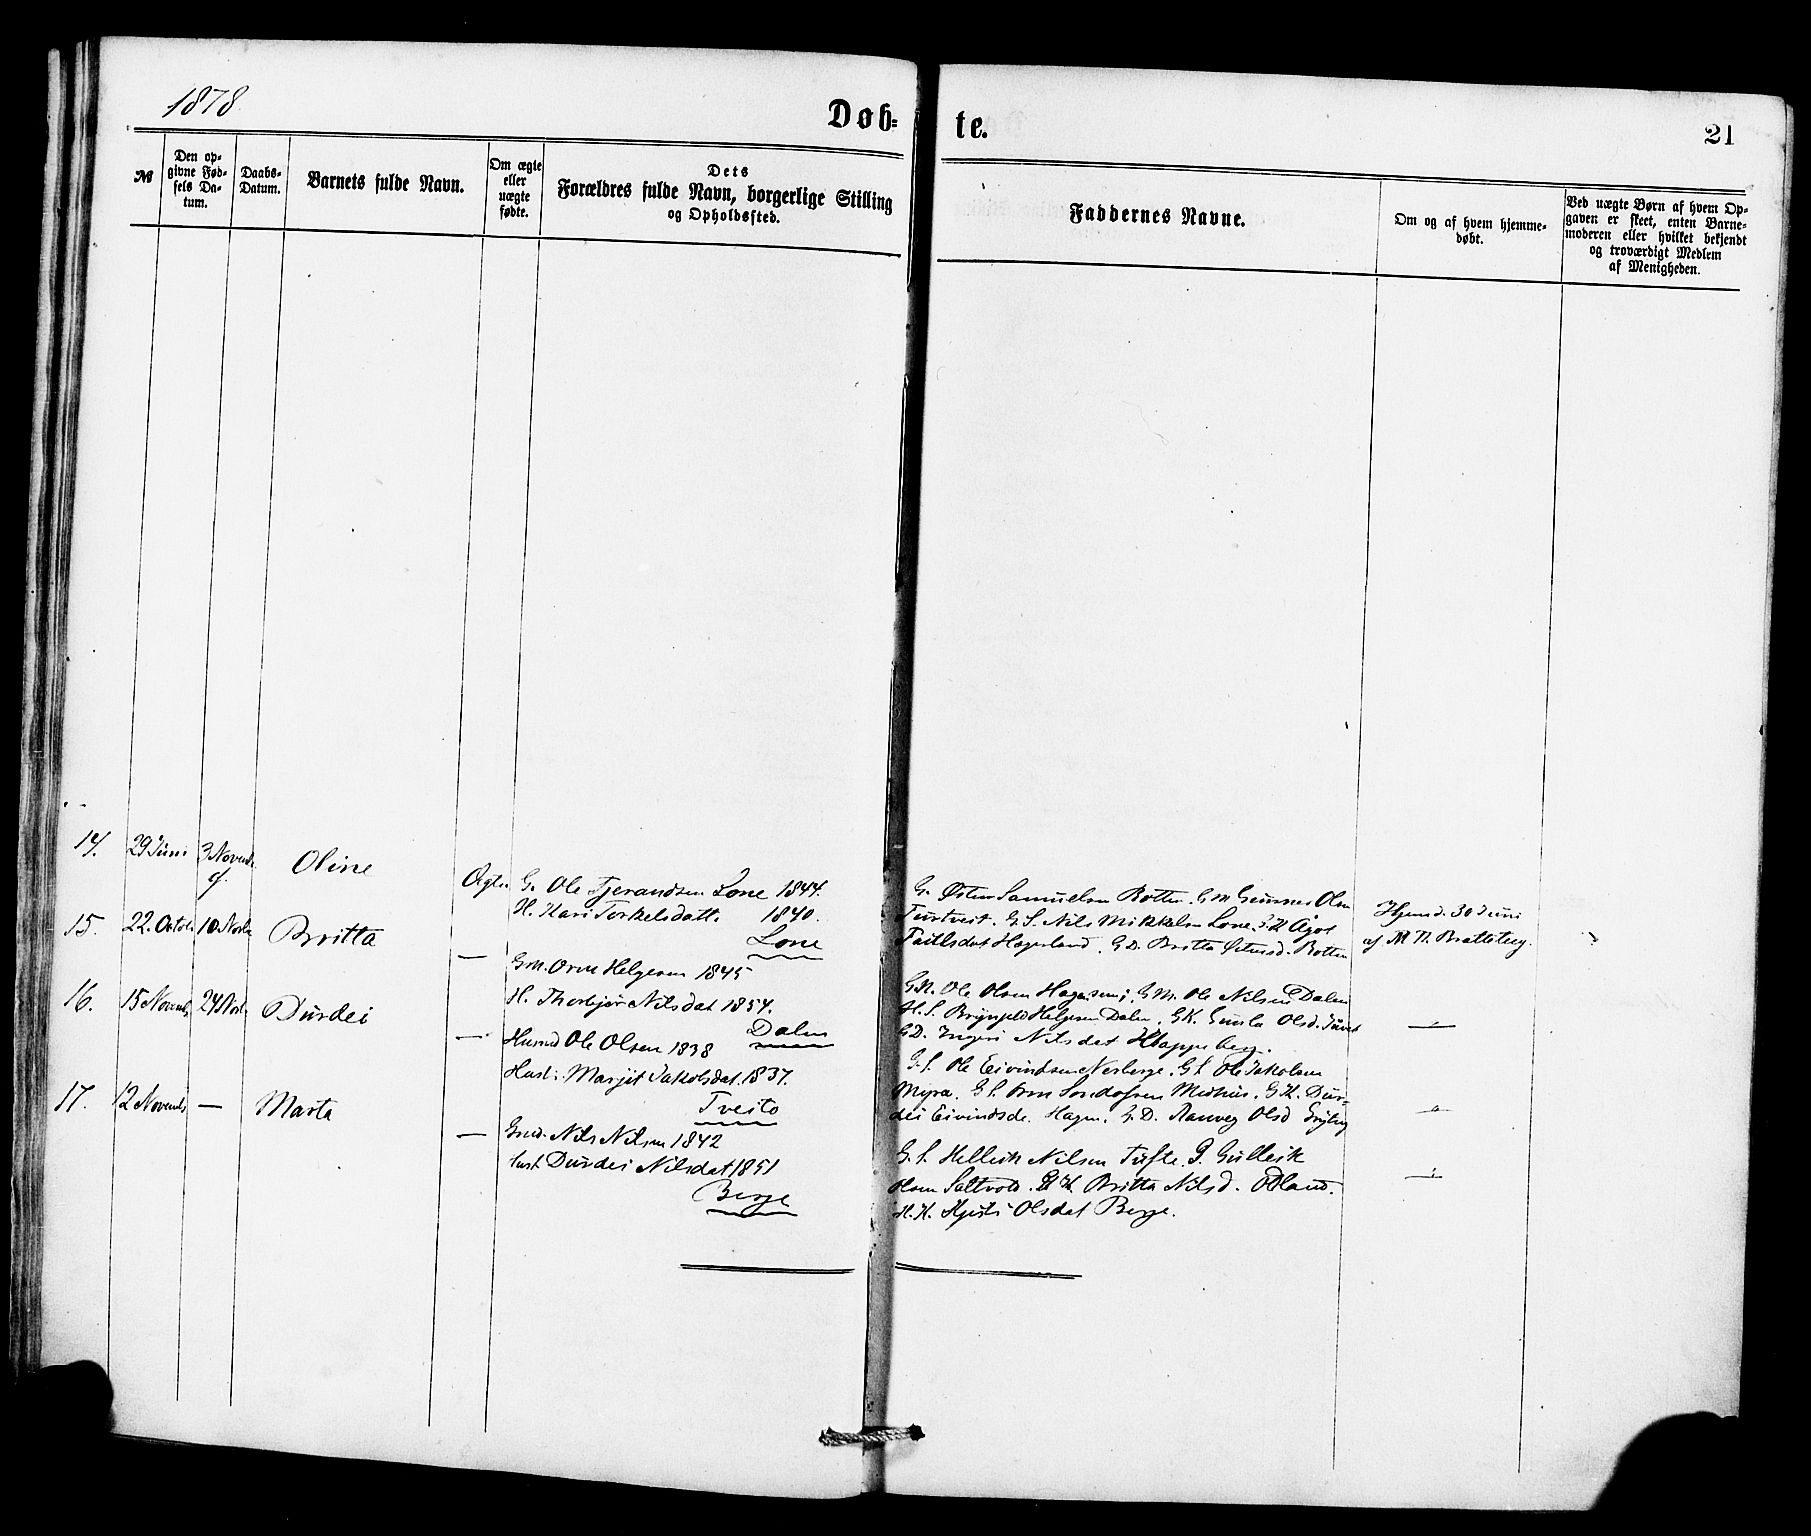 1878
Døb-
te.
21
№
Den op-
givne Fød-
sels Da-
tum.
Daabs-
Datum.
Barnets fulde Navn.
Om ægte
eller
uægte
fødte.
Dets
Forældres fulde Navn, borgerlige Stilling
og Opholdssted.
Faddernes Navne.
Om og af hvem hjemme-
døbt.
Ved uægte Børn af hvem Op-
gaven er skeet, enten Barne-
moderen eller hvilket bekjendt
og troværdigt Medlem
af Menigheden.
14. 29 Juni 3 Novemb. Oline Ægte
G. Ole Tjerandsen Lone 1844.
H. Kari Torkelsdatt. 1840.
Lone
G. Østen Samuelsen Rotten. G M Gunnes Olsn
Turtveit. G. S. Nils Mikkelsn Lone. Agot
Hagerland. G D. Britta Østensd. Rotten
Hjemd. 30 Juni
af M N. Bratteberg.
15. 22. Octob. 10. Novbr Britta —
Gm. Orm Helgesen 1845
H. Thorbjør Nilsdat 1854.
Dalen
Ole Olsen Gm. Ole Nilsen Dalen
H. S. Brynjuld Helgesen Dalen. GK. Gunla Olsd.
GD. Ingeri Nilsdat
16. 15 Novemb. 24 Novb. Durdei —
Husmd Ole Olsen 1838
Hust: Marjit Jakobsdat. 1837.
Tveito
G. S. Ole Eivindsen Nerberge. G S. Ole Jakobsen
Myra. G S. Orm Midhus. G K. Dur-
dei Eivindsd. Hagen. G. D. Ranveg Olsd
17. 12 Novemb. — Marta —
Gmd. Nils Nilsen 1842
Hust. Durdei Nilsdat 1851
Berge
G. S. Hellik Nilsen Tufte. G. Gullik
Olsen Saltvold. G K. Britta Nilsd. Ødland.
H. K. Olsdat Berge.